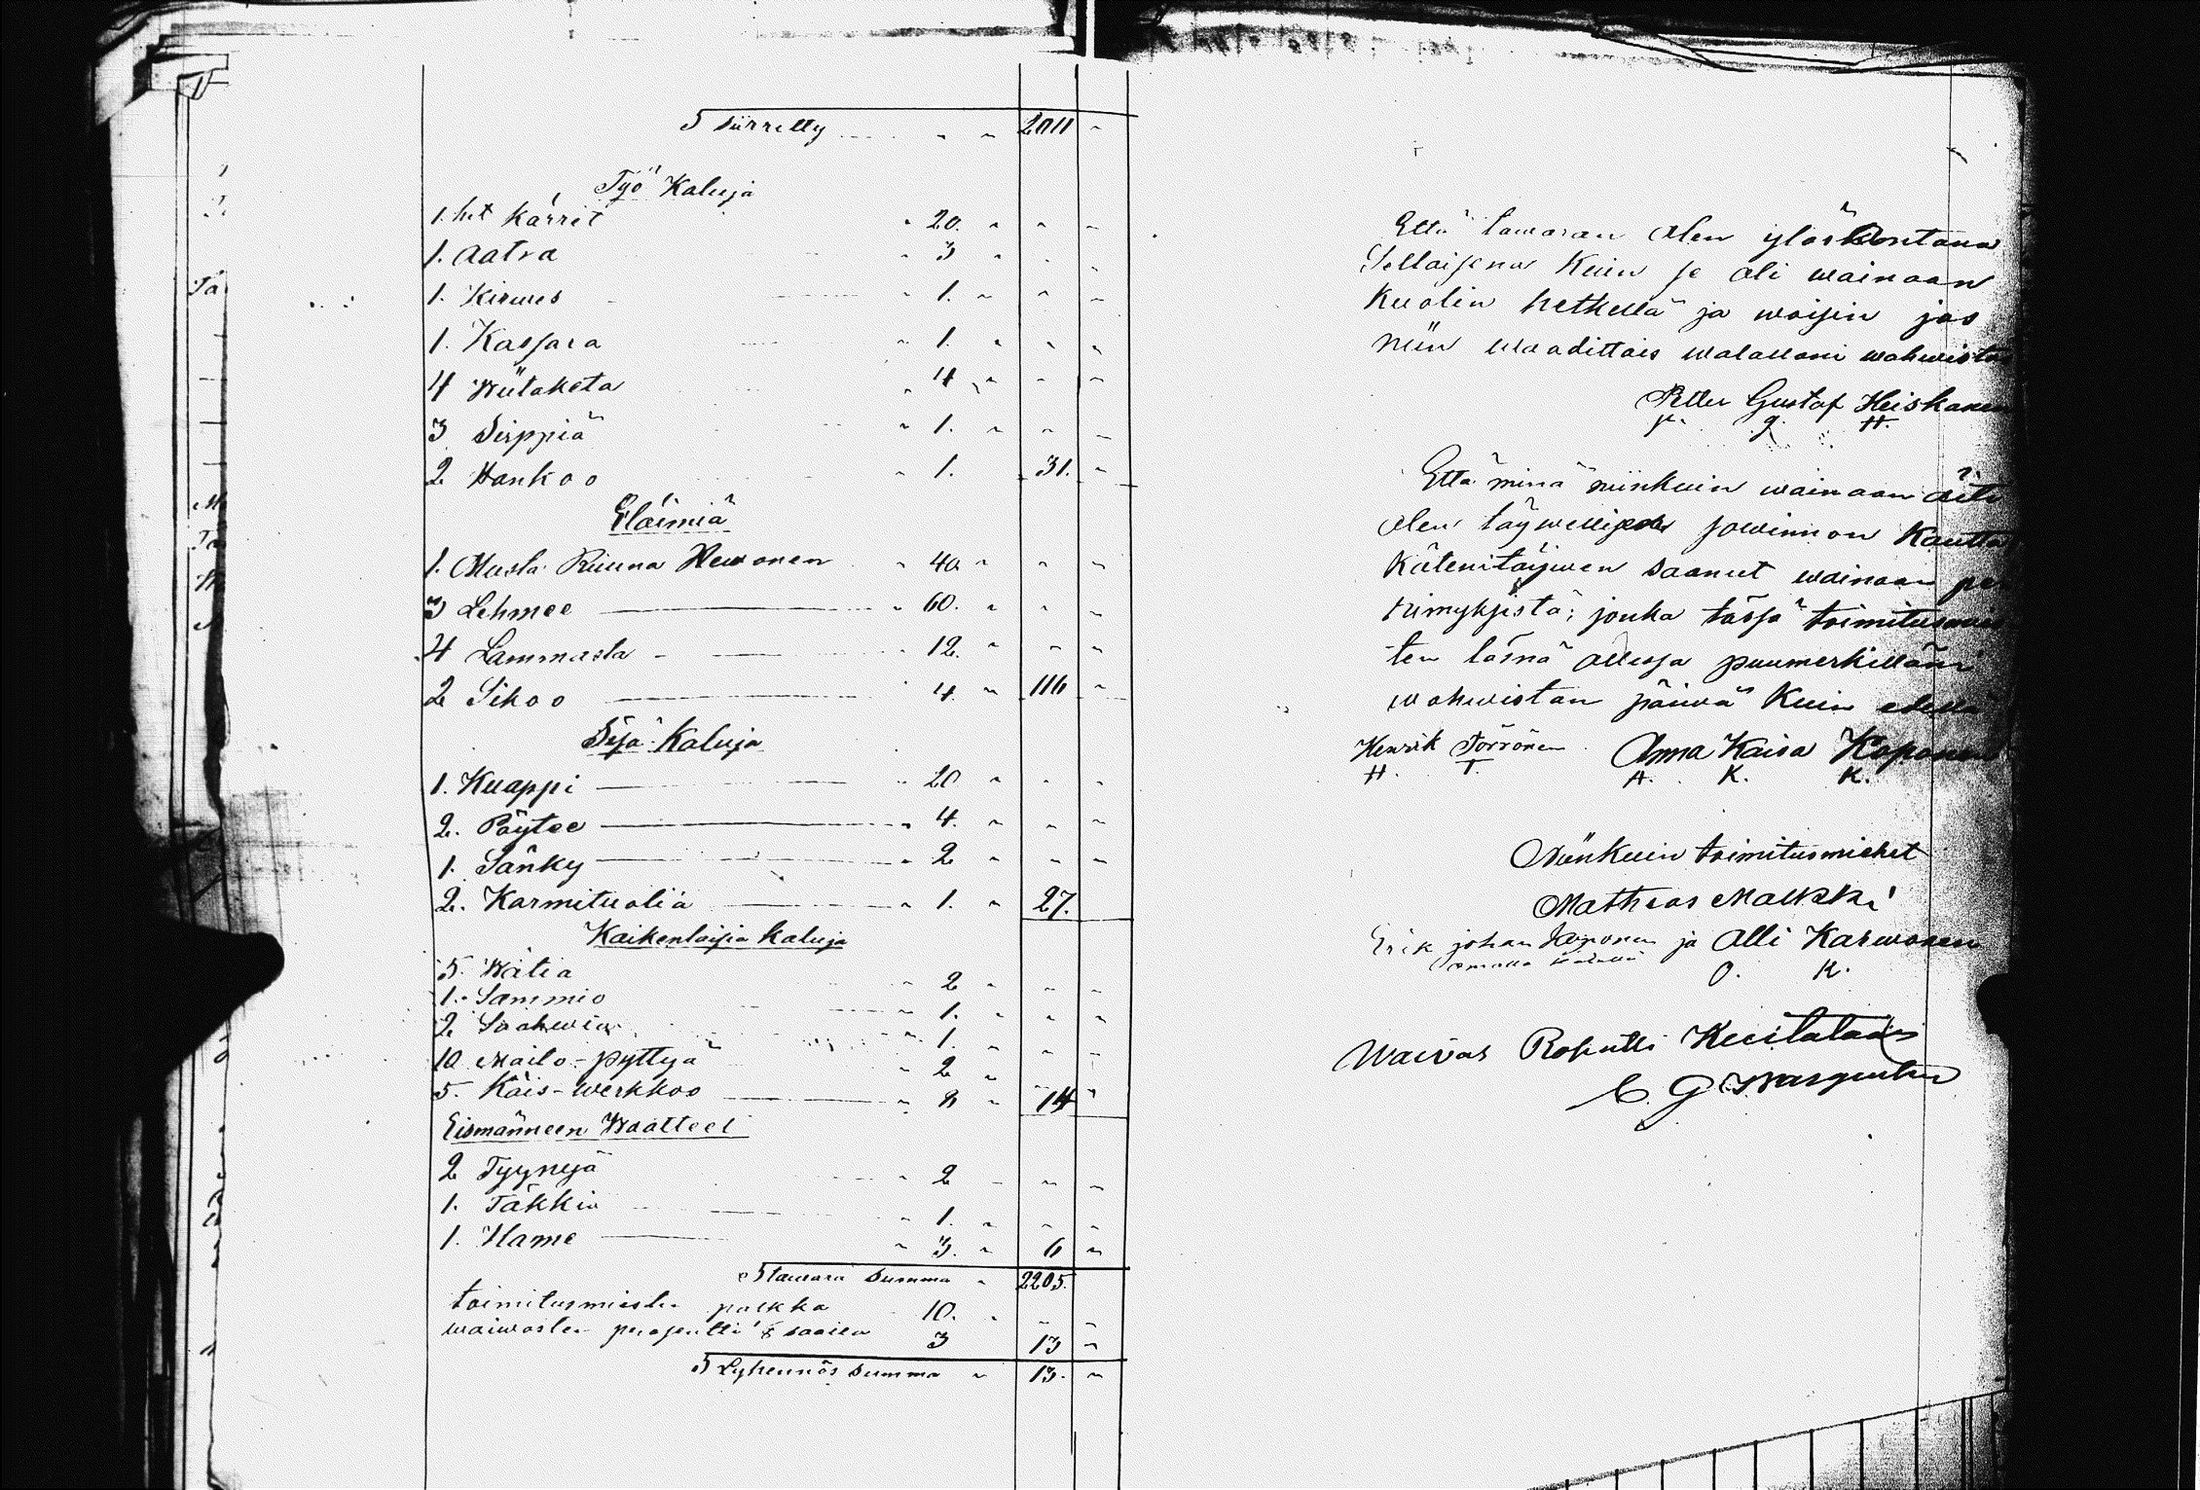 Siirretty " " 2011 "
Työ Kaluja
1. het Kärrit " 20. " " "
1. Aatra " 3 " " "
1. Kirwes " 1. " " "
1. Kassara " 1. " " "
4 Wiitaketa " 4 " " "
3 Sirppiä " 1. " " "
2 Hankoo " 1. 31. "
Eläimiä
1. Musta Ruuna Hewonen " 40 " " "
3 Lehmee " 60. " " "
4 Lammasta " 12. " " "
2 Sikoo " 4. " 116 "
Sisä-Kaluja
1. Kuappi " 20 " " "
2. Pöytee " 4. " " "
1. Sänky " 2 " " "
2. Karmituolia " 1. " 27.
Kaikenlaisia Kaluja
5. Wätiä " 2 " " "
1. Sammio " 1. " " "
2 Saakwia " 1. " " "
10 Maito-pyttyä " 2 "
5. Käis-werkkoo " 8 " 14 "
Eismänneen Waatteet
2 Tyynyjä " 2 " " "
1. Täkkiä " 1. " " "
1. Hame " 3. " 6 "
Tawara Summa " 2205.
toimitusmiesten palkka 10. " " "
waiwasten prosentti 3 13 "
Lyhennös Summa " 13. "
Että tawaran olen ylösantanu
Sellaisena Kuin se oli wainaan
Kuolin hetkellä ja woisin jos
niin waadittais walallani wahwista
Petter Gustaf Heiskanen
P. G. H.
Että minä niinkuin wainaan äiti
olen täywellisen sowinnon Kautta
Käteni täywen saanut wainaan pe
rimyksistä; jonka tässä toimitusmies
ten läsnä ollessa puumerkilläni
wahwistan päiwä Kuin edellä
Henrik Törrönen Anna Kaisa Koponen
H. T. A. K. K.
Niinkuin toimitusmiehet
Matheas Malkki
Erik johan Koponen ja Olli Karwonen
O. K.
Waivas Rosentti Kuitataan
C. G.